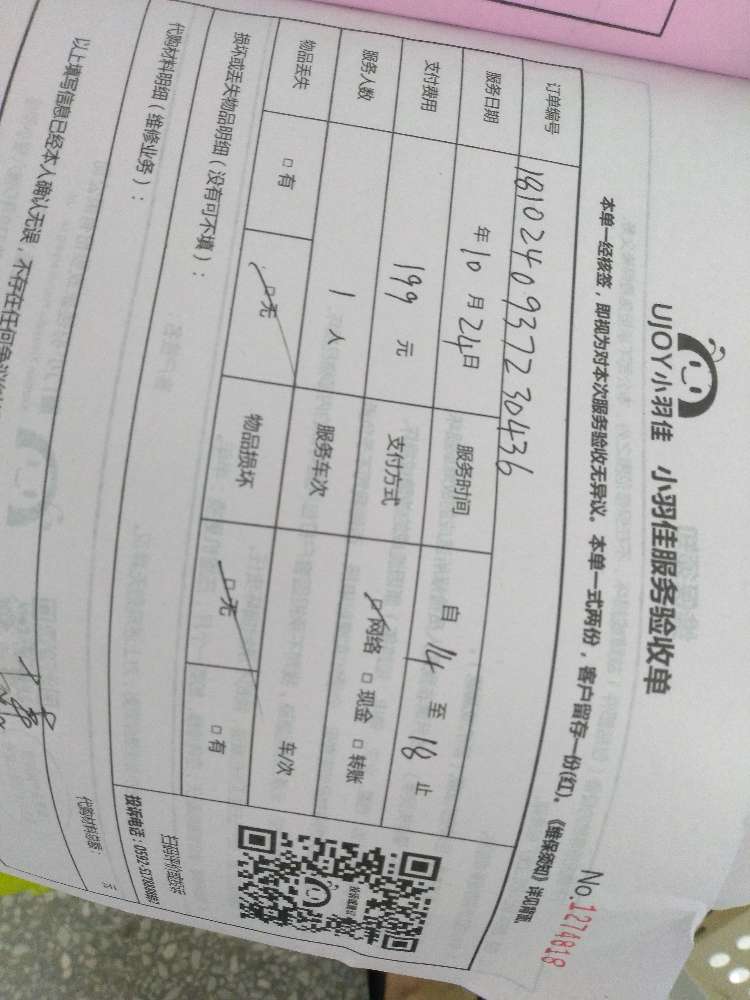 UJOY小羽佳 小羽佳服务验收单
No.1274818
本单一经核签，即视为对本次服务验收无异议。本单一式两份，客户留存一份(红)。《维保须知》详见背面。
订单编号 181024093723 0436
服务日期 年10月24日 服务时间 自14至18止
支付费用 199元 支付方式 □网络 □现金 □转账
服务人数 1人 服务车次 车/次
物品丢失 □有 □无 物品损坏 □无 □有
损坏或丢失物品明细（没有可不填）：
扫码评价有好礼
投诉电话：0592-5178888
代购材料明细（维修业务）：
代购材料总额： 元
以上填写信息已经本人确认无误，不存在任何争议